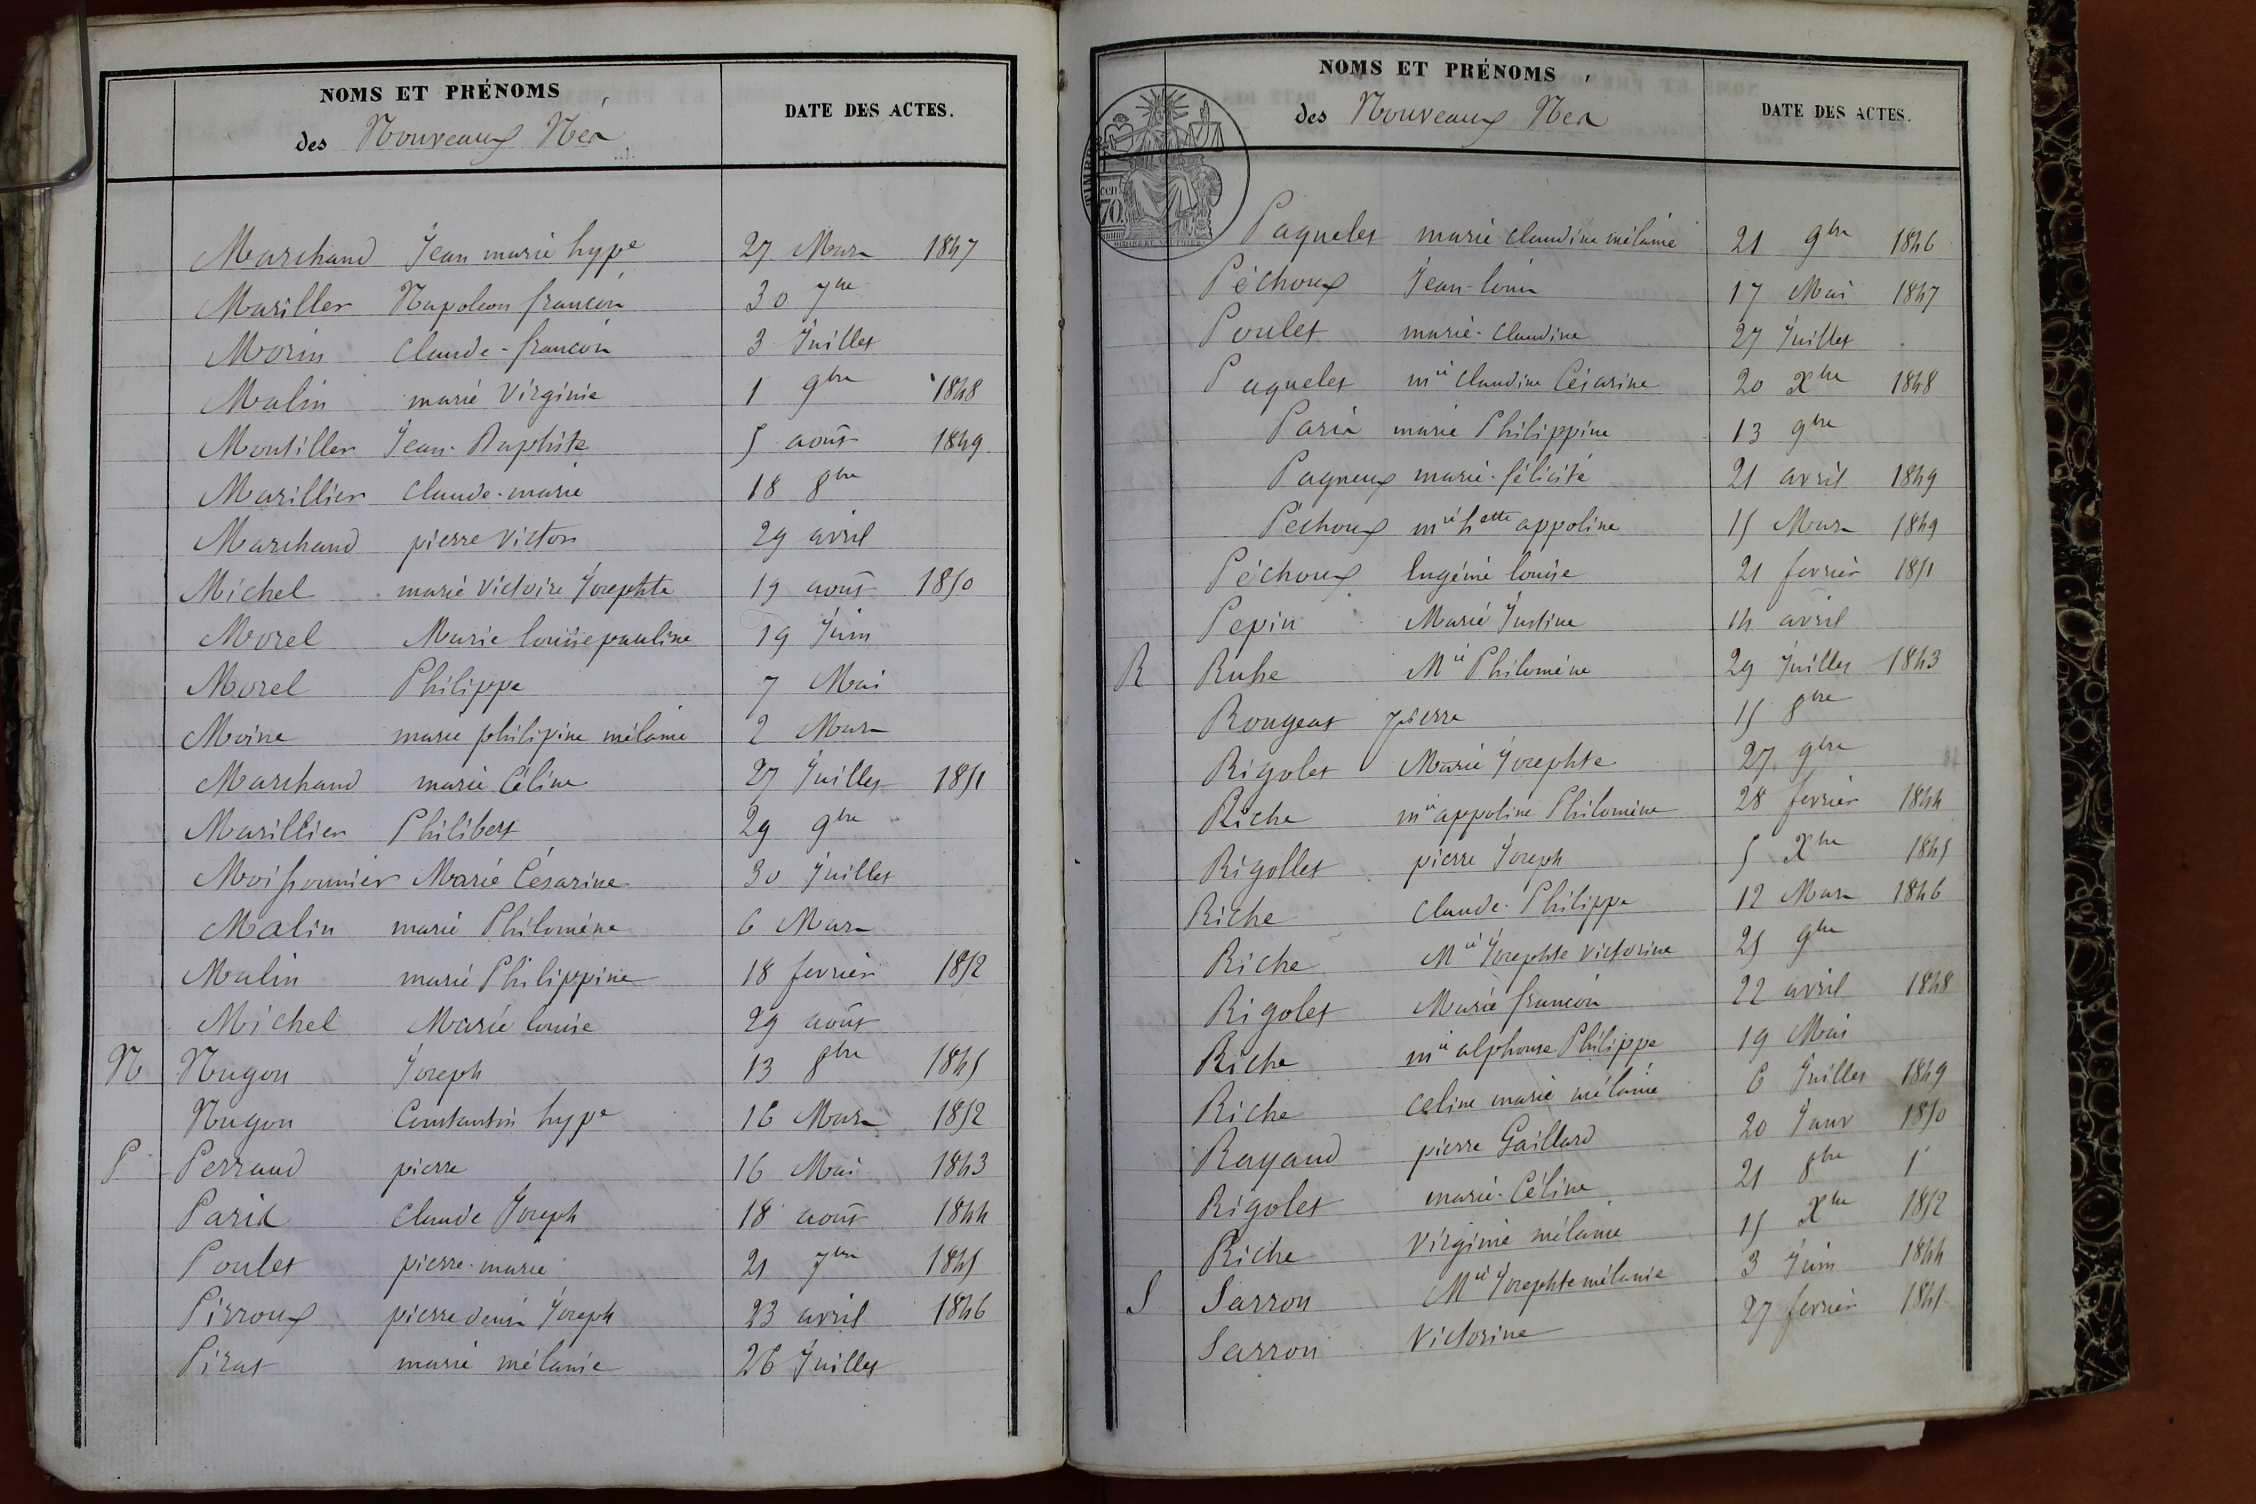 NOMS ET PRÉNOMS
des Nouveaux Nés
DATE DES ACTES.
Marchand Jean marie hypte 27 Mars 1847
Mariller Napoleon françois 30 7bre
Morin claude-françois 3 Juillet
Malin marie Virginie 1 9bre 1848
Montillet Jean-Baptiste 5 août 1849
Marillier claude-marie 18 8bre
Marchand pierre Victor 29 avril
Michel marie Victoire Josephte 19 août 1850
Morel Marie louise pauline 19 Juin
Morel Philippe 7 Mai
Moine marie philipine mélanie 2 Mars
Marchand marie Céline 27 Juillet 1851
Marillier Philibert 29 9bre
Moissonnier Marie Césarine 30 Juillet
Malin marie Philomène 6 Mars
Malin marie Philippine 18 fevrier 1852
Michel Marie louise 29 août
N Nugon Joseph 13 8bre 1845
Nugon Constantin hypte 16 Mars 1852
P Perraud pierre 16 Mai 1843
Paris claude Joseph 18 août 1844
Poulet pierre-marie 21 7bre 1845
Pirroux pierre denis Joseph 23 avril 1846
Pirat marie mélanie 26 Juillet
NOMS ET PRÉNOMS
des Nouveaux Nés
DATE DES ACTES.
70
Paquelet marie claudine mélanie 21 9bre 1846
Péchoux Jean-louis 17 Mai 1847
Poulet marie-claudine 27 Juillet
Paquelet mie claudine Césarine 20 Xbre 1848
Paris marie Philippine 13 9bre
Pagneux marie-félicité 21 avril 1849
Péchoux mie hette appoline 15 Mars 1849
Péchoux Eugénie louise 21 fevrier 1851
Pepin Marie Justine 14 avril
R Ruhe Mie Philomène 29 Juillet 1843
Rougeat pierre 15 8bre
Rigolet Marie Josephte 27 9bre
Riche mie appoline Philomène 28 fevrier 1844
Rigollet pierre Joseph 5 Xbre 1845
Riche claude-Philippe 12 Mars 1846
Riche Mie Josephte Victorine 25 9bre
Rigolet Marie françois 22 avril 1848
Riche mie alphonse Philippe 19 Mai
Riche celine marie mélanie 6 Juillet 1849
Rayaud pierre Gaillard 20 Janv 1850
Rigolet marie-Céline 21 8bre 1
Riche Virginie mélanie 15 Xbre 1852
S Sarron Mie Josephte mélanie 3 Juin 1844
Sarron Victorine 27 fevrier 1845